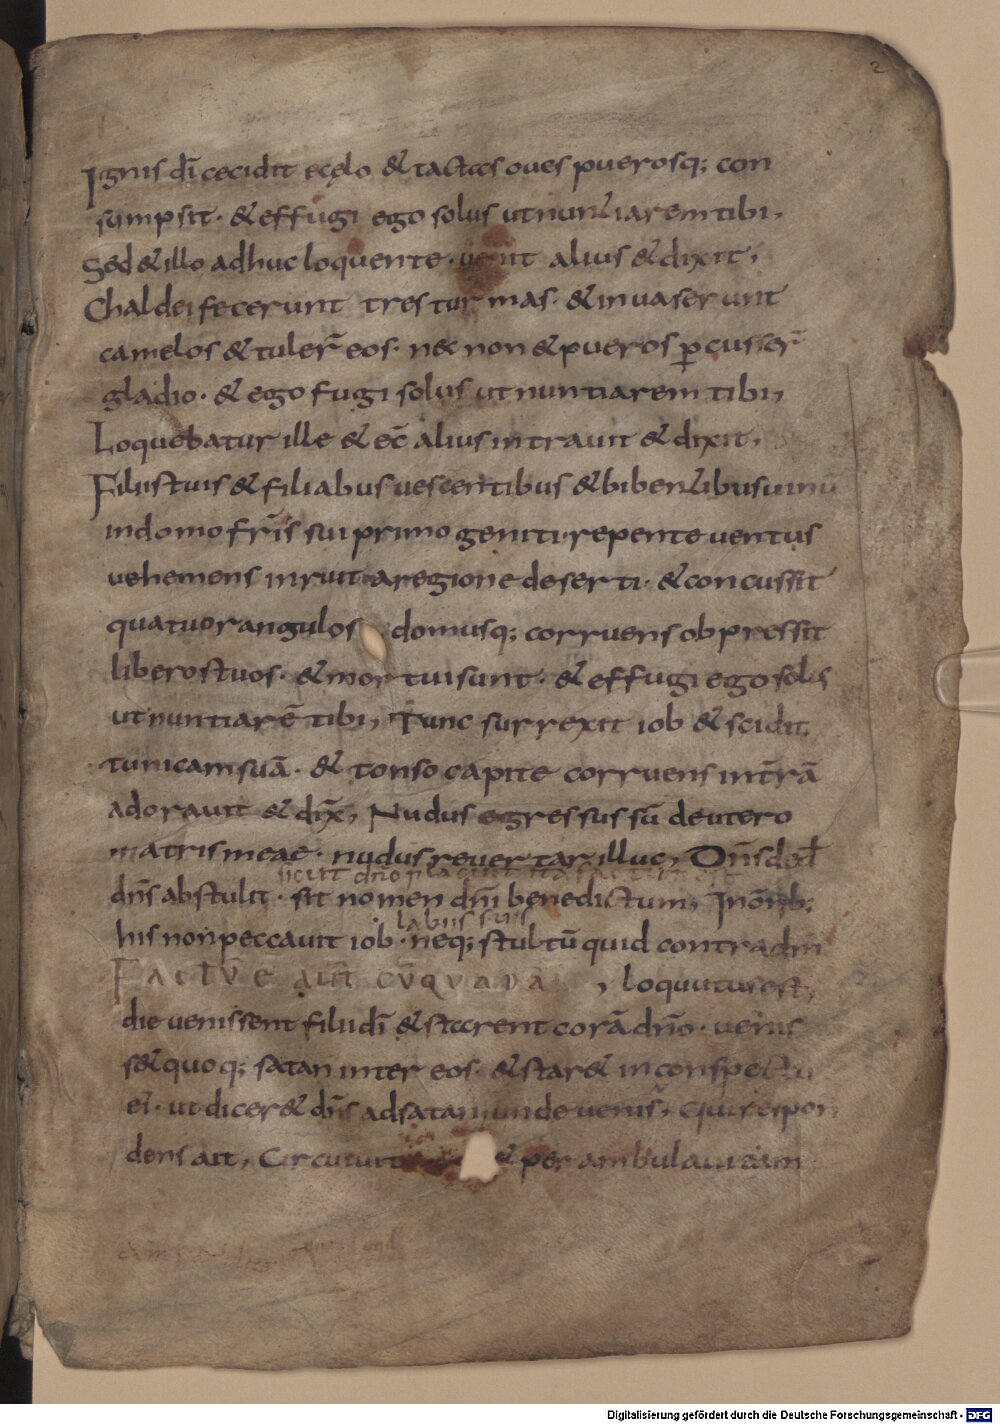 2
Ignis dī cecidit ecęlo & tactas oves puerosq; con
sumpsit · & effugi ego solus ut nuntiarem tibi,
Sed & illo adhuc loquente · venit alius & dixit,
Chaldei fecerunt tres turmas · & invaserunt
camelos & tuler̄ eos · nec non & pueros p̄cusser̄
gladio · & ego fugi solus ut nuntiarem tibi,
Loquebatur ille & ecc̄ alius intravit & dixit,
Filiis tuis & filiabus vescentibus & bibentibus vinū
in domo fr̄is sui primogeniti · repente ventus
vehemens inruit a regione deserti · & concussit
quatuor angulos domus q; corruens obpressit
liberos tuos · & mortui sunt · & effugi ego solus
ut nuntiarē tibi, Tunc surrexit iob & scidit
tunicam suā · & tonso capite corruens in t̄rā
adoravit & dīx̄, Nudus egressus sū de utero
matris meae · nudus revertar illuc, Dn̄s ded̄
sicut dn̄o placuit ita
dn̄s abstulit · sit nomen dn̄i benedictum, In om̄ib;
labiis suis
his non peccavit iob · neq; stultū quid contra dm̄
Factū ē aut̄ cū quada , loquutus est,
die venissent filii dī & starent corā dn̄o · venis
s& quoq; satan inter eos · & star& in conspectu
ei · ut dicer& dn̄s ad satan unde venis, Qui respon
dens ait, Circuivi & perambulavi eam
Digitalisierung gefördert durch die Deutsche Forschungsgemeinschaft - DFG